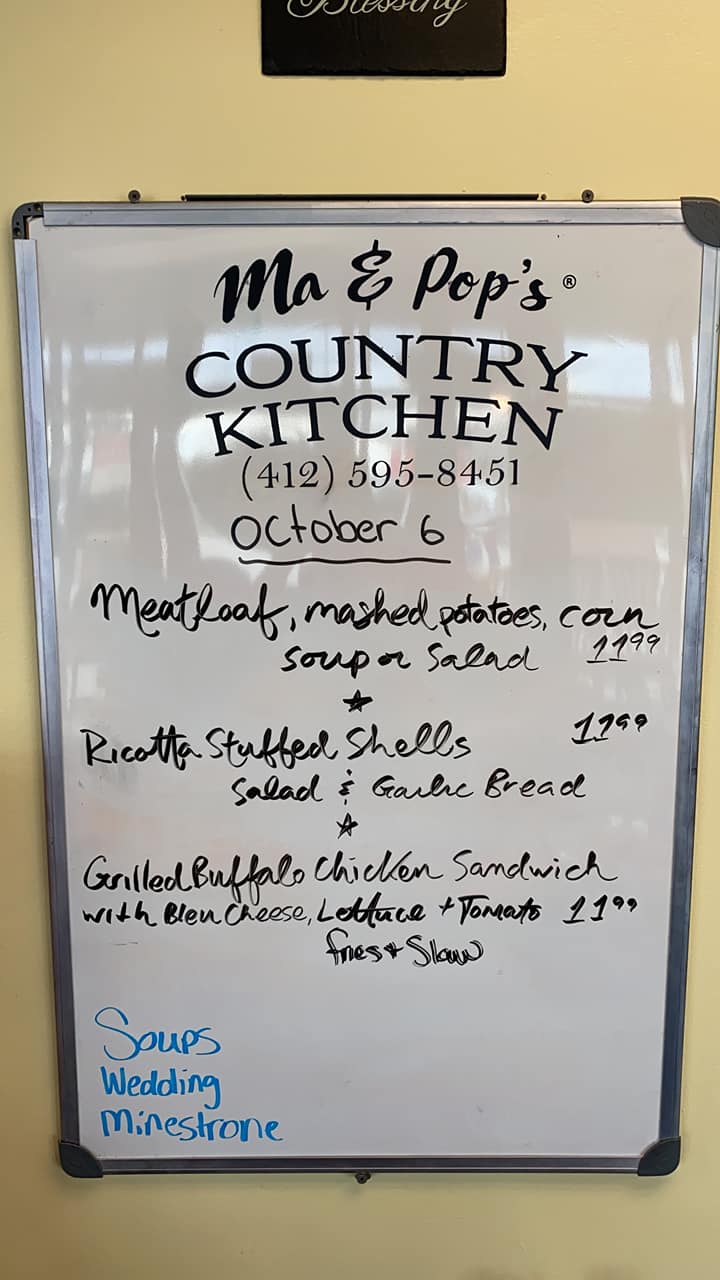 Blessing
Ma & Pop's®
COUNTRY
KITCHEN
(412) 595-8451
October 6
Meatloaf, mashed potatoes, corn
soup or Salad 11.99
Ricotta Stuffed Shells 11.99
Salad & Garlic Bread
Grilled Buffalo Chicken Sandwich
with Bleu Cheese, Lettuce + Tomato 11.99
fries + Slaw
Soups
Wedding
Minestrone